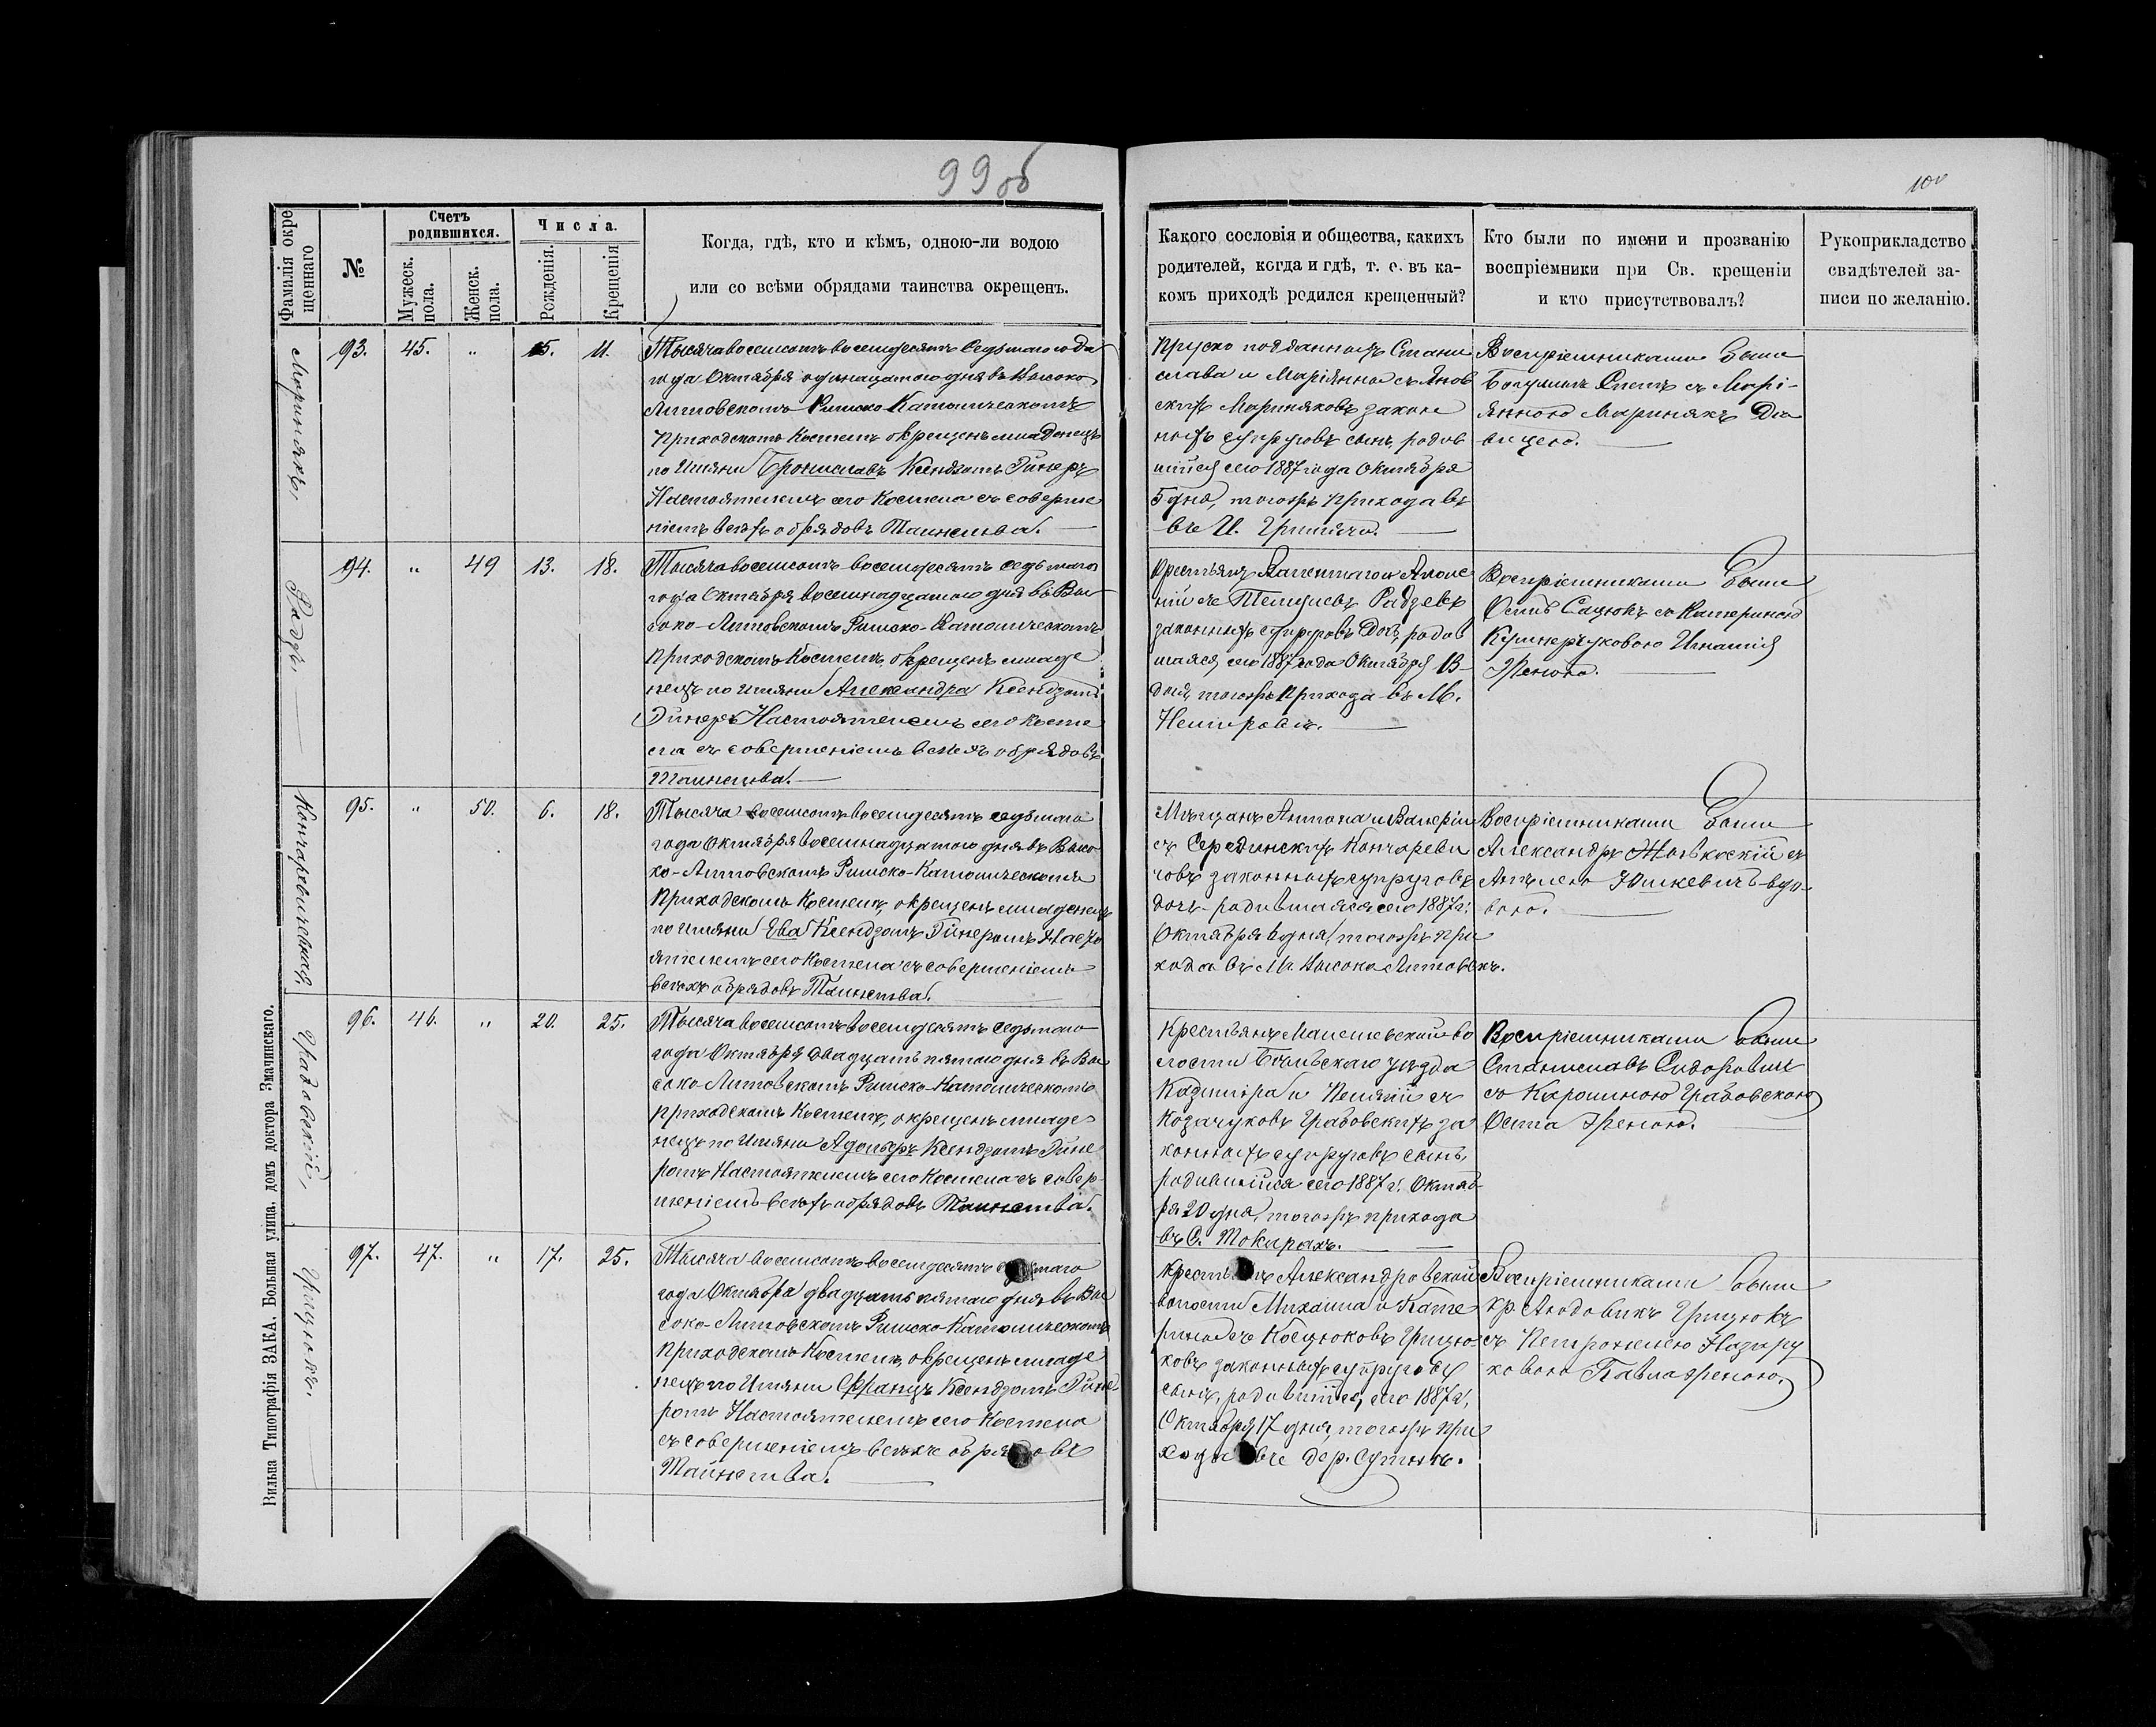 99 об
100
Фамилія окре
щеннаго
№
Счетъ
родившихся.
Мужеск.
пола.
Женск.
пола.
Числа.
Рожденія.
Крещенія
Когда, гдѣ, кто и кѣмъ, одною-ли водою
или со всѣми обрядами таинства окрещенъ.
Какого сословія и общества, какихъ
родителей, когда и гдѣ, т. е. въ ка-
комъ приходѣ родился крещенный?
Кто были по имени и прозванію
воспріемники при Св. крещеніи
и кто присутствовалъ?
Рукоприкладство
свидѣтелей за-
писи по желанію.
Моринякъ,
93. 45. " 5. 11.
Тысяча восемсотъ восемдесятъ седьмаго
года Октября одинацатого дня въ Высоко
Литовскомъ Римско Католическомъ
Приходскомъ Костелѣ, окрещенъ младенецъ
по Имяни Брониславъ Ксендзомъ Гинеръ
Настоятелемъ сего Костела съ соверше
ніемъ всѣхъ обрядовъ Таинства.
Пруско подданныхъ Стани
слава и Маріянны съ Янов
скихъ Мариняковъ закон
ныхъ супруговъ сынъ, родив
шійся сего 1887 года Октября
5 дня, тогожъ прихода въ
въ И.
Воспріемниками были
съ Марі-
янною Маринякъ Дѣ
вицею.
Радзь,
94. " 49 13. 18.
Тысяча восемсотъ восемдесятъ седьмаго
года Октября восемнадцатого дня въ Вы
соко-Литовскомъ Римско-Католическомъ
Приходскомъ Костелѣ, окрещенъ младе
нецъ по имяни Александра Ксендзомъ
Гинеръ Настоятелемъ сего Косте
ла съ совершеніемъ всѣхъ обрядовъ
Таинства.
Крестьянъ
съ Радзевъ
законныхъ супруговъ Дочь, родив
шаяся, сего 1887 года Октября 13
дня, тогожъ Прихода въ М.
Немировѣ.
Воспріемниками были
Осипъ Сацюкъ съ Катериною
Игнатія
Женою.
Кончаревичевна,
95. " 50. 6. 18.
Тысяча восемсотъ восемдесятъ седьмаго
года Октября восемнадцатого дня въ Высо-
ко-Литовскомъ Римско-Католическомъ
Приходскомъ Костелѣ, окрещенъ младенецъ
по имяни Ева Ксендзомъ Гинеромъ Насто
ятелемъ сего Костела съ совершеніемъ
всѣхъ обрядовъ Таинства.
Мѣщанъ Антона и Валеріи
съ Серединскихъ Кончареви
човъ законныхъ супруговъ
дочь родившаяся сего 1887 г.
Октября 6 дня, тогожъ при
хода въ М. Высоко Литовскѣ.
Воспріемниками были
Александръ съ
Юшкевичъ вдо-
вою.
Грабовскій,
96. 46. " 20. 25.
Тысяча восемсотъ восемдесятъ седьмаго
года Октября двадцать пятого дня въ Вы
соко-Литовскомъ Римско-Католическомъ
Приходскомъ Костелѣ, окрещенъ младе
нецъ по Имяни Адольфъ Ксендзомъ Гине
ромъ Настоятелемъ сего Костела съ совер-
шеніемъ всѣхъ обрядовъ Таинства.
Крестьянъ во
лости Бѣльскаго уѣзда
Казимира и съ
Козачуковъ Грабовскихъ за
конныхъ супруговъ сынъ
родившійся сего 1887 г. Октяб-
ря 20 дня, тогожъ прихода
въ С. Токарахъ.
Воспріемниками были
Станиславъ Сидоровичъ
съ Каролиною Грабовскою
Осипа Женою.
Грицюкъ.
97. 47. " 17. 25.
Тысяча восемсотъ восемдесятъ седьмаго
года Октября двадцать пятого дня въ Вы
соко-Литовскомъ Римско-Католическомъ
Приходскомъ Костелѣ, окрещенъ младе
нецъ по Имяни Францъ Ксендзомъ Гине-
ромъ Настоятелемъ сего Костела
съ совершеніемъ всѣхъ обрядовъ
Таинства.
Крестьянъ Александровской
волости Михаила и Кате
рины съ Косцюковъ Грицю-
ковъ законныхъ супруговъ
сынъ, родившійся, сего 1887 г.,
Октября 17 дня, тогожъ при
хода въ дер. Сутынѣ.
Воспріемниками были
кр. Людовикъ Грицюкъ
съ Петронелею Назару
ковою Павла женою.
Вильна Типографія ЗАКА. Большая улица, домъ доктора Змачинскаго.